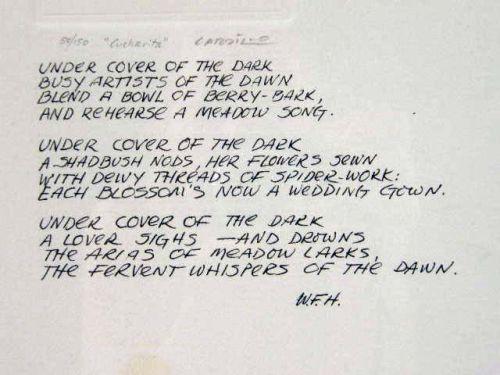 50/150 "Cucharita"
UNDER COVER OF THE DARK
BUSY ARTISTS OF THE DAWN
BLEND A BOWL OF BERRY-BARK,
AND REHEARSE A MEADOW SONG.
UNDER COVER OF THE DARK
A SHADBUSH NODS, HER FLOWERS SEWN
WITH DEWY THREADS OF SPIDER-WORK:
EACH BLOSSOM'S NOW A WEDDING GOWN.
UNDER COVER OF THE DARK
A LOVER SIGHS —AND DROWNS
THE ARIAS OF MEADOW LARKS,
THE FERVENT WHISPERS OF THE DAWN.
W.F.H.